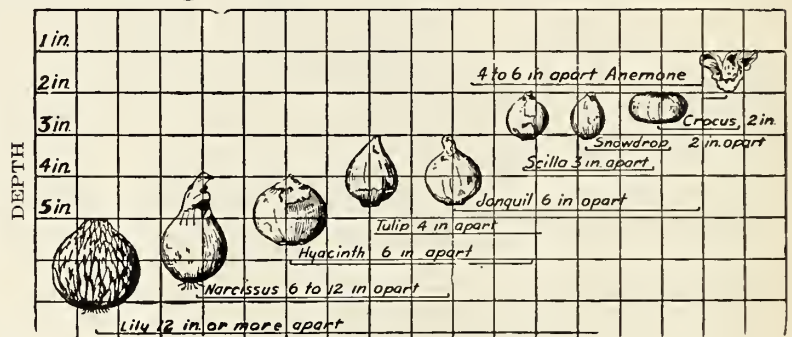 1 in.
2 in.
3 in.
4 in.
5 in.
DEPTH
4 to 6 in apart Anemone
Crocus, 2 in.
Snowdrop, 2 in. apart
Scilla 3 in apart
Jonquil 6 in apart
Tulip 4 in apart
Hyacinth 6 in apart
Narcissus 6 to 12 in apart
Lily 12 in. or more apart